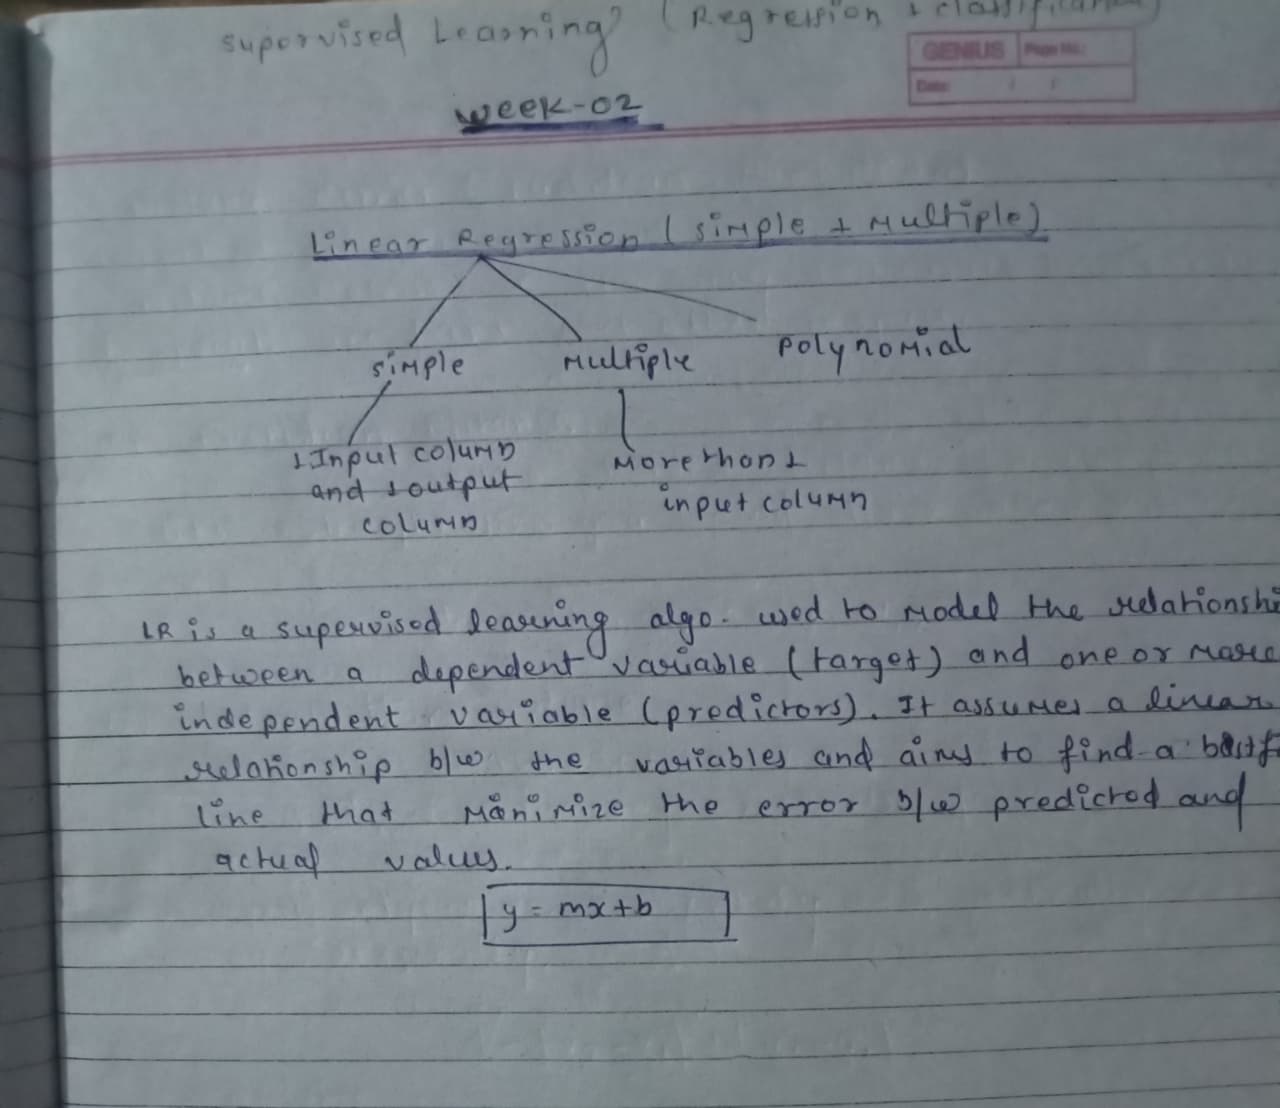 Supervised Learning? (Regression + classification)
GENIUS Page No.:
Date: / /
Week-02
Linear Regression (simple + Multiple)
simple Multiple Polynomial
1 Input column More than 1
and 1 output input column
column
LR is a supervised learning algo. used to model the relationshi
between a dependent variable (target) and one or more
independent variable (predictors). It assumes a linear
relationship b/w the variables and aims to find a
line that minimize the error b/w predicted and
actual values.
y = mx+b